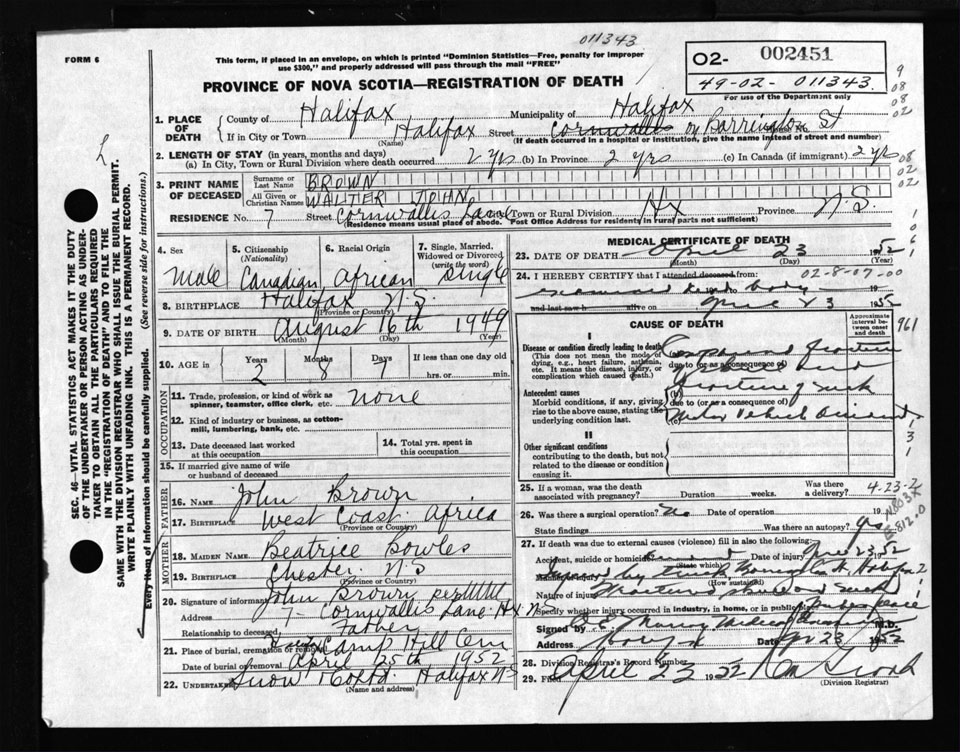 011343
FORM 6
This form, if placed in an envelope, on which is printed "Dominion Statistics—Free, penalty for improper
use $300," and properly addressed will pass through the mail "FREE"
02- 002451
49-02- 011343.
For use of the Department only
PROVINCE OF NOVA SCOTIA—REGISTRATION OF DEATH
1. PLACE OF DEATH
County of Halifax Municipality of Halifax
If in City or Town Halifax Street Cornwallis on Barrington St
(Name) (If death occurred in a hospital or institution, give the name instead of street and number)
2. LENGTH OF STAY (in years, months and days)
(a) In City, Town or Rural Division where death occurred 2 yrs (b) In Province 2 yrs (c) In Canada (if immigrant) 2 yrs
3. PRINT NAME OF DECEASED
Surname or Last Name BROWN
All Given or Christian Names WALTER JOHN
RESIDENCE No. 7 Street Cornwallis Lane Town or Rural Division Hx Province N.S.
(Residence means usual place of abode. Post Office Address for residents in rural parts not sufficient)
4. Sex Male
5. Citizenship (Nationality) Canadian
6. Racial Origin African
7. Single, Married, Widowed or Divorced (write the word) Single
8. BIRTHPLACE Halifax N.S.
(Province or Country)
9. DATE OF BIRTH August 16th 1949
(Month) (Day) (Year)
10. AGE in Years Months Days If less than one day old
2 8 7 hrs. or min.
OCCUPATION
11. Trade, profession, or kind of work as spinner, teamster, office clerk, etc. none
12. Kind of industry or business, as cotton-mill, lumbering, bank, etc.
13. Date deceased last worked at this occupation
14. Total yrs. spent in this occupation
15. If married give name of wife or husband of deceased
FATHER
16. NAME John Brown
17. BIRTHPLACE West Coast Africa
(Province or Country)
MOTHER
18. MAIDEN NAME Beatrice Bowles
19. BIRTHPLACE Chester N.S
(Province or Country)
20. Signature of informant John Brown
Address 7 - Cornwallis Lane Hx N.S
Relationship to deceased Father
21. Place of burial, cremation or removal Camp Hill Cem
Date of burial or removal April 25th 1952
22. Undertaker Snow Halifax N.S
(Name and address)
MEDICAL CERTIFICATE OF DEATH
23. DATE OF DEATH April 23 1952
(Month) (Day) (Year)
24. I HEREBY CERTIFY that I attended deceased from: 02-8-07-00
examined dead body
and last saw h alive on April 23 1952
CAUSE OF DEATH
Approximate interval between onset and death
961
I
Disease or condition directly leading to death
(This does not mean the mode of dying, e.g., heart failure, asthenia, etc. It means the disease, injury, or complication which caused death.)
Compound fracture
due to (or as a consequence of)
Antecedent causes
Morbid conditions, if any, giving rise to the above cause, stating the underlying condition last.
Fracture of
(b) due to (or as a consequence of)
(c) Motor Vehicle Accident
II
Other significant conditions contributing to the death, but not related to the disease or condition causing it.
25. If a woman, was the death associated with pregnancy? Duration weeks. Was there a delivery?
4-23-2
N803X
E812.0
26. Was there a surgical operation? No Date of operation
State findings Was there an autopsy? yes
27. If death was due to external causes (violence) fill in also the following:
Accident, suicide or homicide? Accident Date of injury April 23 1952
(State which)
by truck Halifax
(How sustained)
Nature of injury Fractured skull and
Specify whether injury occurred in industry, in home, or in public place Public place
Signed by Medical M.D.
Address Date Apr 23 1952
28. Division Registrar's Record Number
29. Filed April 23 1952
(Division Registrar)
SEC. 46—VITAL STATISTICS ACT MAKES IT THE DUTY
OF THE UNDERTAKER OR PERSON ACTING AS UNDER-
TAKER TO OBTAIN ALL THE PARTICULARS REQUIRED
IN THE "REGISTRATION OF DEATH" AND TO FILE THE
SAME WITH THE DIVISION REGISTRAR WHO SHALL ISSUE THE BURIAL PERMIT.
WRITE PLAINLY WITH UNFADING INK. THIS IS A PERMANENT RECORD.
Every item of Information should be carefully supplied. (See reverse side for instructions.)